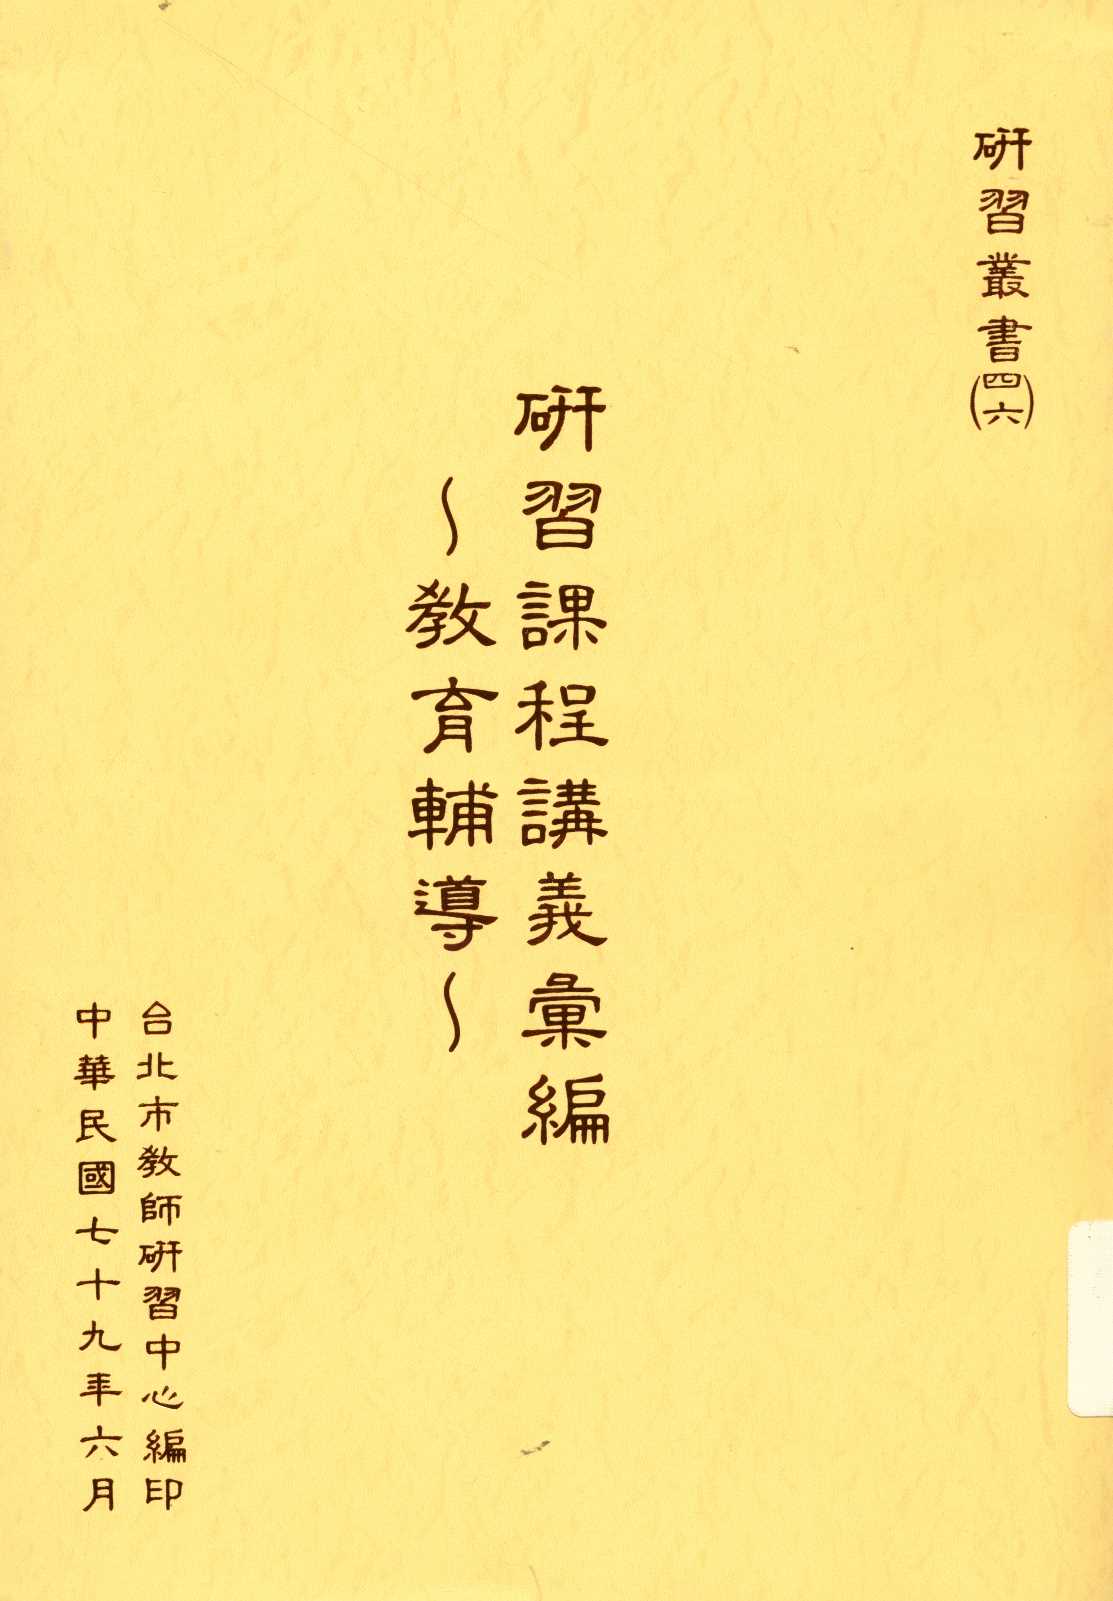 研習叢書(四六)
研習課程講義彙編
～教育輔導～
台北市教師研習中心編印
中華民國七十九年六月